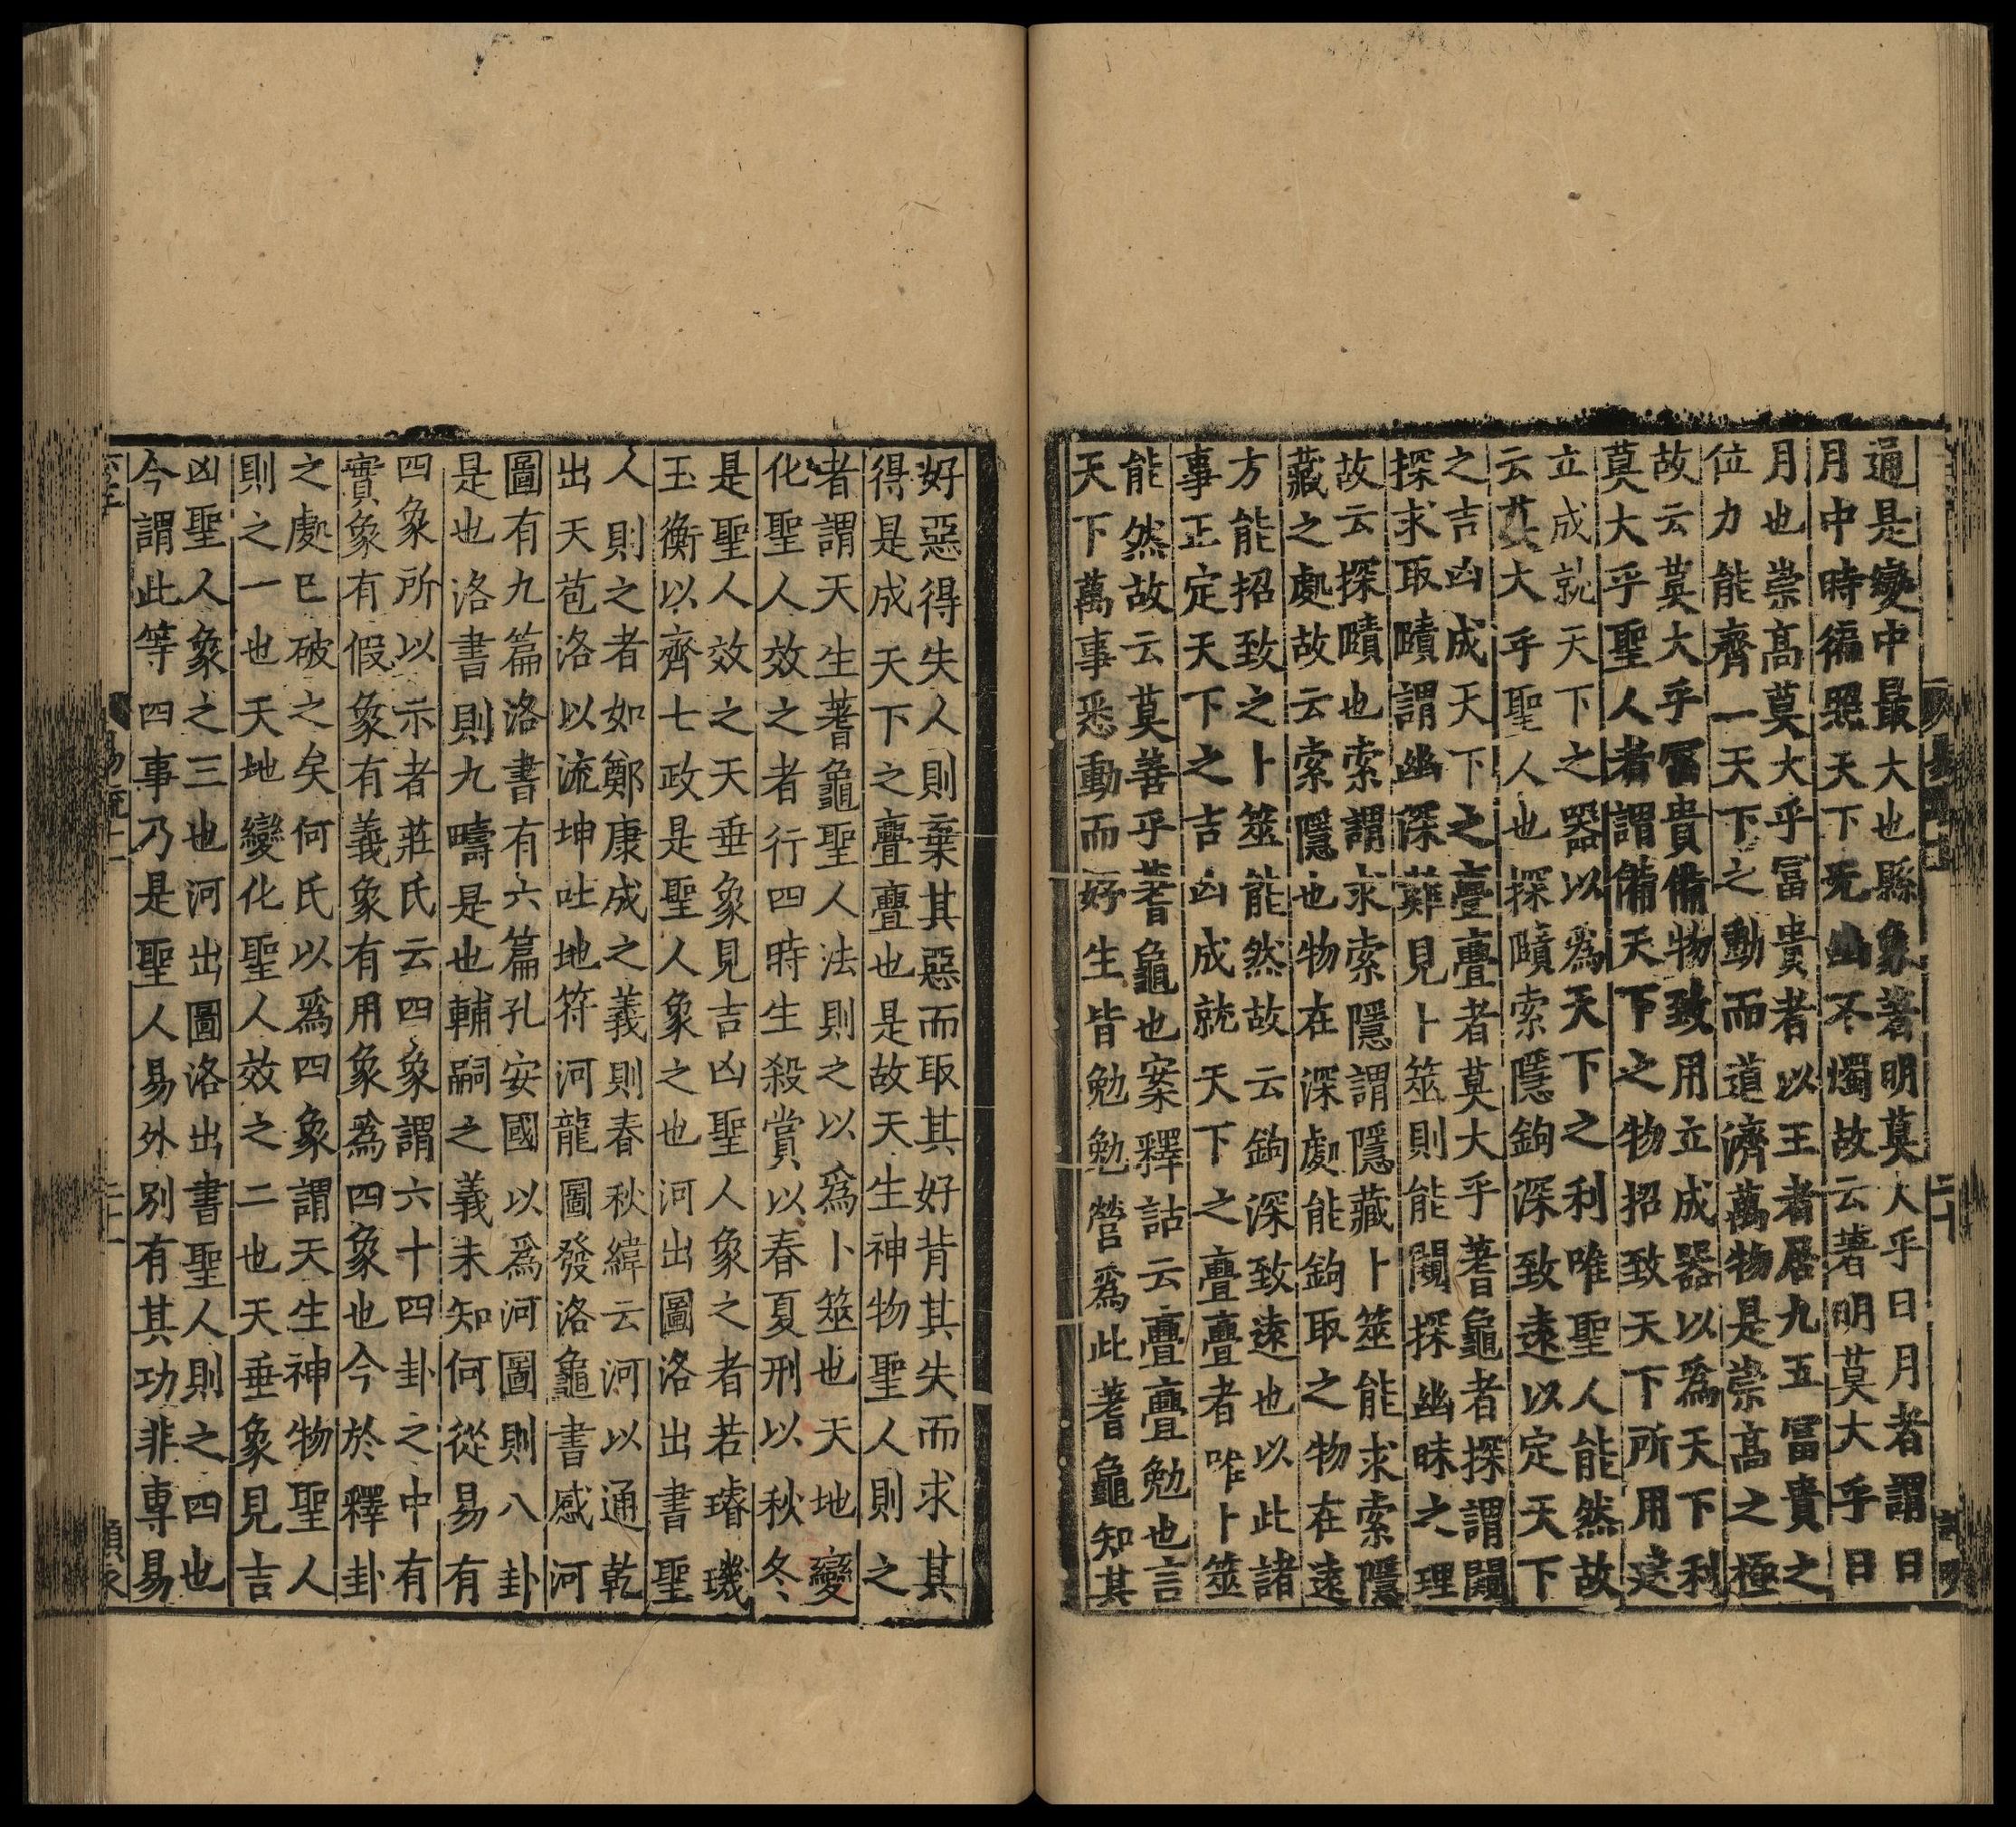 通是變中最大也縣象著明莫大乎日月者謂日
月中時徧照天下无幽不燭故云著明莫大乎日
月也崇高莫大乎冨貴者以王者居九五冨貴之
位力能齊一天下之動而道濟萬物是崇高之極
故云莫大乎冨貴備物致用立成器以爲天下利
莫大乎聖人者謂備天下之物招致天下所用建
立成就天下之器以爲天下之利唯聖人能然故
云莫大乎聖人也探賾索隱鉤深致遠以定天下
之吉凶成天下之亹亹者莫大乎蓍龜者探謂闚
探求取賾謂幽深難見卜筮則能闚探幽昧之理
故云探賾也索謂求索隱謂隱藏卜筮能求索隱
藏之處故云索隱也物在深處能鉤取之物在遠
方能招致之卜筮能然故云鉤深致遠也以此諸
事正定天下之吉凶成就天下之亹亹者唯卜筮
能然故云莫善乎蓍龜也案釋詁云亹亹勉也言
天下萬事悉動而好生皆勉勉營爲此蓍龜知其
好惡得失人則棄其惡而取其好背其失而求其
得是成天下之亹亹也是故天生神物聖人則之
者謂天生蓍龜聖人法則之以爲卜筮也天地變
化聖人效之者行四時生殺賞以春夏刑以秋冬
是聖人效之天垂象見吉凶聖人象之者若璿璣
玉衡以齊七政是聖人象之也河出圖洛出書聖
人則之者如鄭康成之義則春秋緯云河以通乾
出天苞洛以流坤吐地符河龍圖發洛龜書感河
圖有九篇洛書有六篇孔安國以爲河圖則八卦
是也洛書則九疇是也輔嗣之義未知何從易有
四象所以示者莊氏云四象謂六十四卦之中有
實象有假象有義象有用象爲四象也今於釋卦
之處已破之矣何氏以爲四象謂天生神物聖人
則之一也天地變化聖人效之二也天垂象見吉
凶聖人象之三也河出圖洛出書聖人則之四也
今謂此等四事乃是聖人易外別有其功非專易